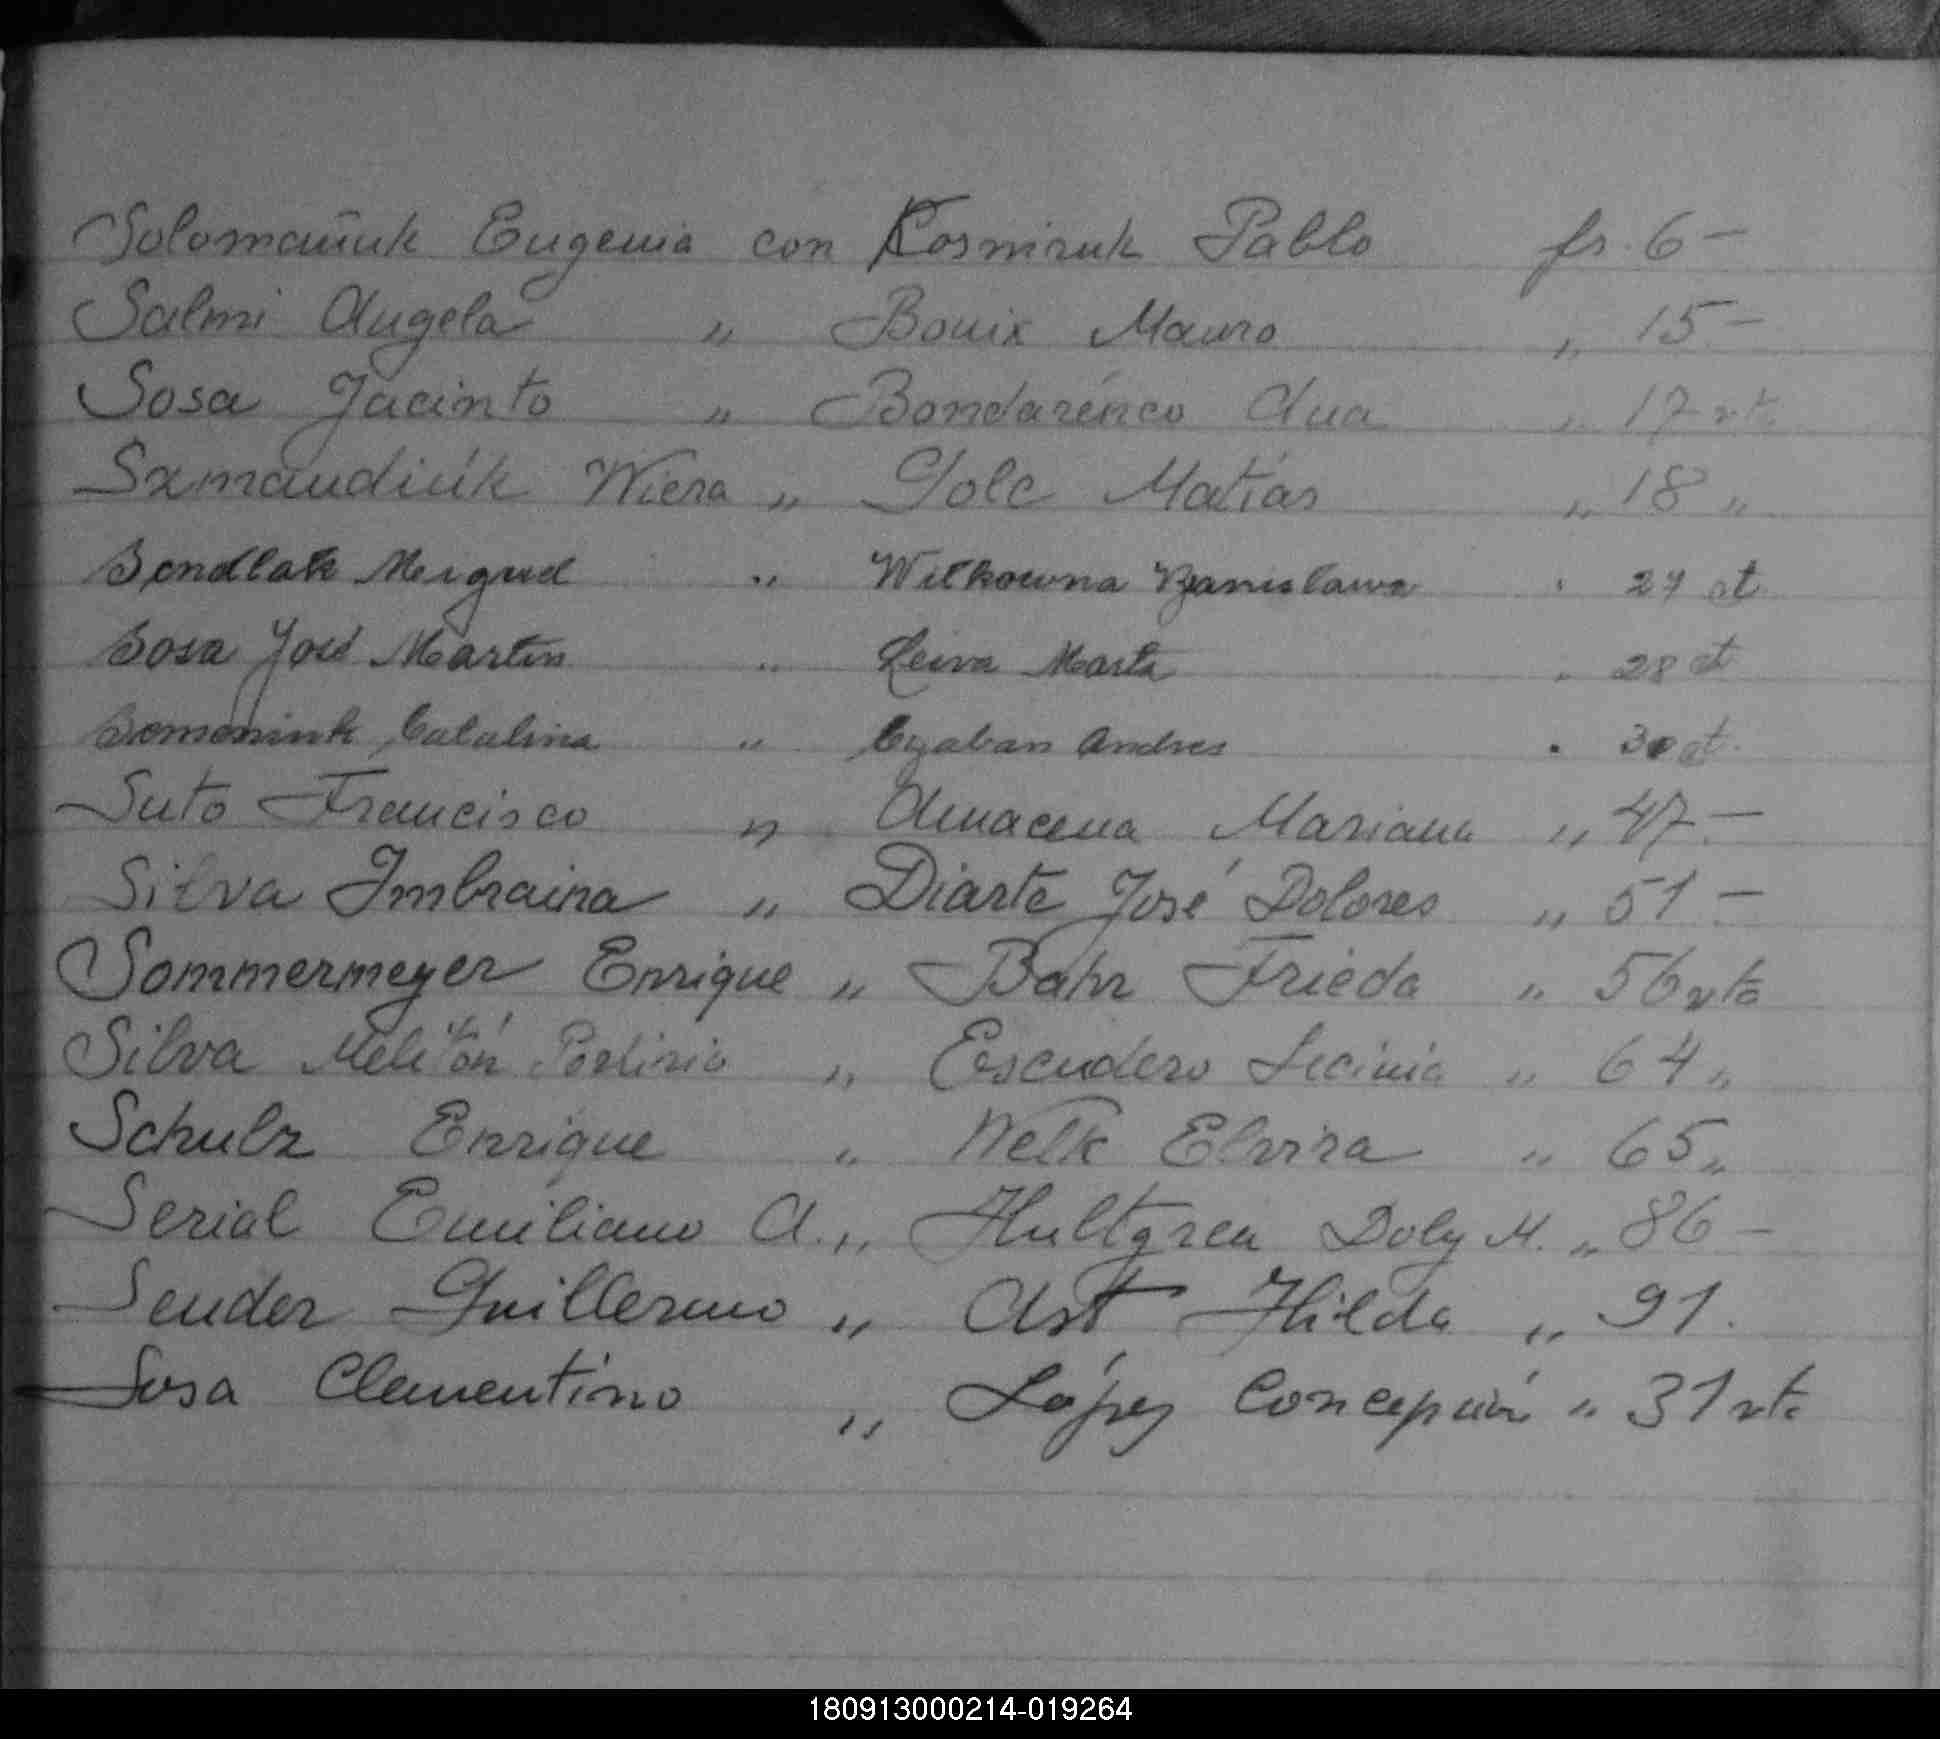 Solomañuk Eugenia con Kosmiruk Pablo fs. 6 —
Salmi Angela " Bouix Mauro " 15 —
Sosa Jacinto " Bondarénco Ana " 17 vta
Szmaudiúk Wiera " Golc Matías " 18 "
Sendlak " Wilkowna 27 vt
Sosa José Martin " Leiva Marta " 28 vt
Catalina " Czaban Andres " 30 vt.
Suto Francisco " Amacena Mariana " 47 —
Silva Imbraina " Diarte José Dolores " 51 —
Sommermeyer Enrique " Bahr Frieda " 56 vta
Silva Melitón " Escudero Licinia " 64 "
Schulz Enrique " Welk Elvira " 65 "
Serial Emiliano A. " Hultgren Doly M. " 86 —
Sender Guillermo " Ast Hilda " 91.
Sosa Clementino " López Concepción " 31 vta
180913000214-019264